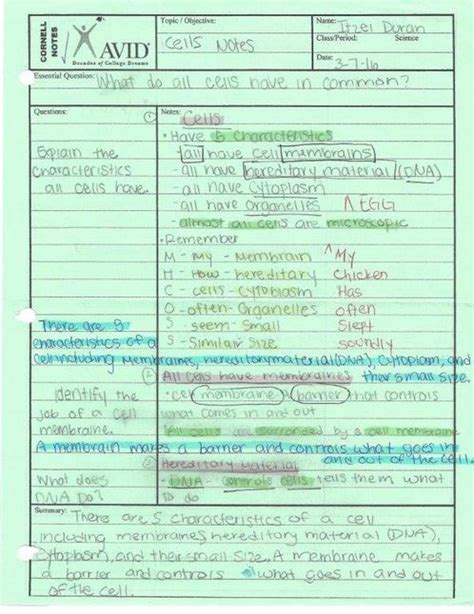 CORNELL NOTES
AVID
Decades of College Dreams
Topic / Objective:
Cells Notes
Name: Itzel Duran
Class/Period: Science
Date: 3-7-16
Essential Question: What do all cells have in common?
Questions:
Notes:
① Cells
• Have 5 characteristics
Explain the
characteristics
all cells have.
- all have cell membrains
- all have hereditary material (DNA)
- all have cytoplasm
- all have organelles ^ EGG
- almost all cells are microscopic
• Remember
M - My - Membrain ^ My
H - How - hereditary Chicken
C - cells - cytoplasm Has
O - often - Organelles often
S - seem - Small Slept
S - Similar Size. soundly
There are 5
characteristics of a
cell including Membraines, hereditory material (DNA), cytoplasm, and
their small size.
② All cells have membraines
Identify the
job of a cell
membraine.
• cell membraine - barrier that controls
what comes in and out
• All cells are surronded by a cell membraine
A membrain makes a barrier and controls what goes in
and out of the cell.
③ Hereditary Material
What does
DNA Do?
• DNA - controls cells, tells them what
to do
Summary: There are 5 characteristics of a cell
including membraines, hereditary material (DNA),
cytoplasm, and their small size. A membraine makes
a barrier and controls what goes in and out
of the cell.